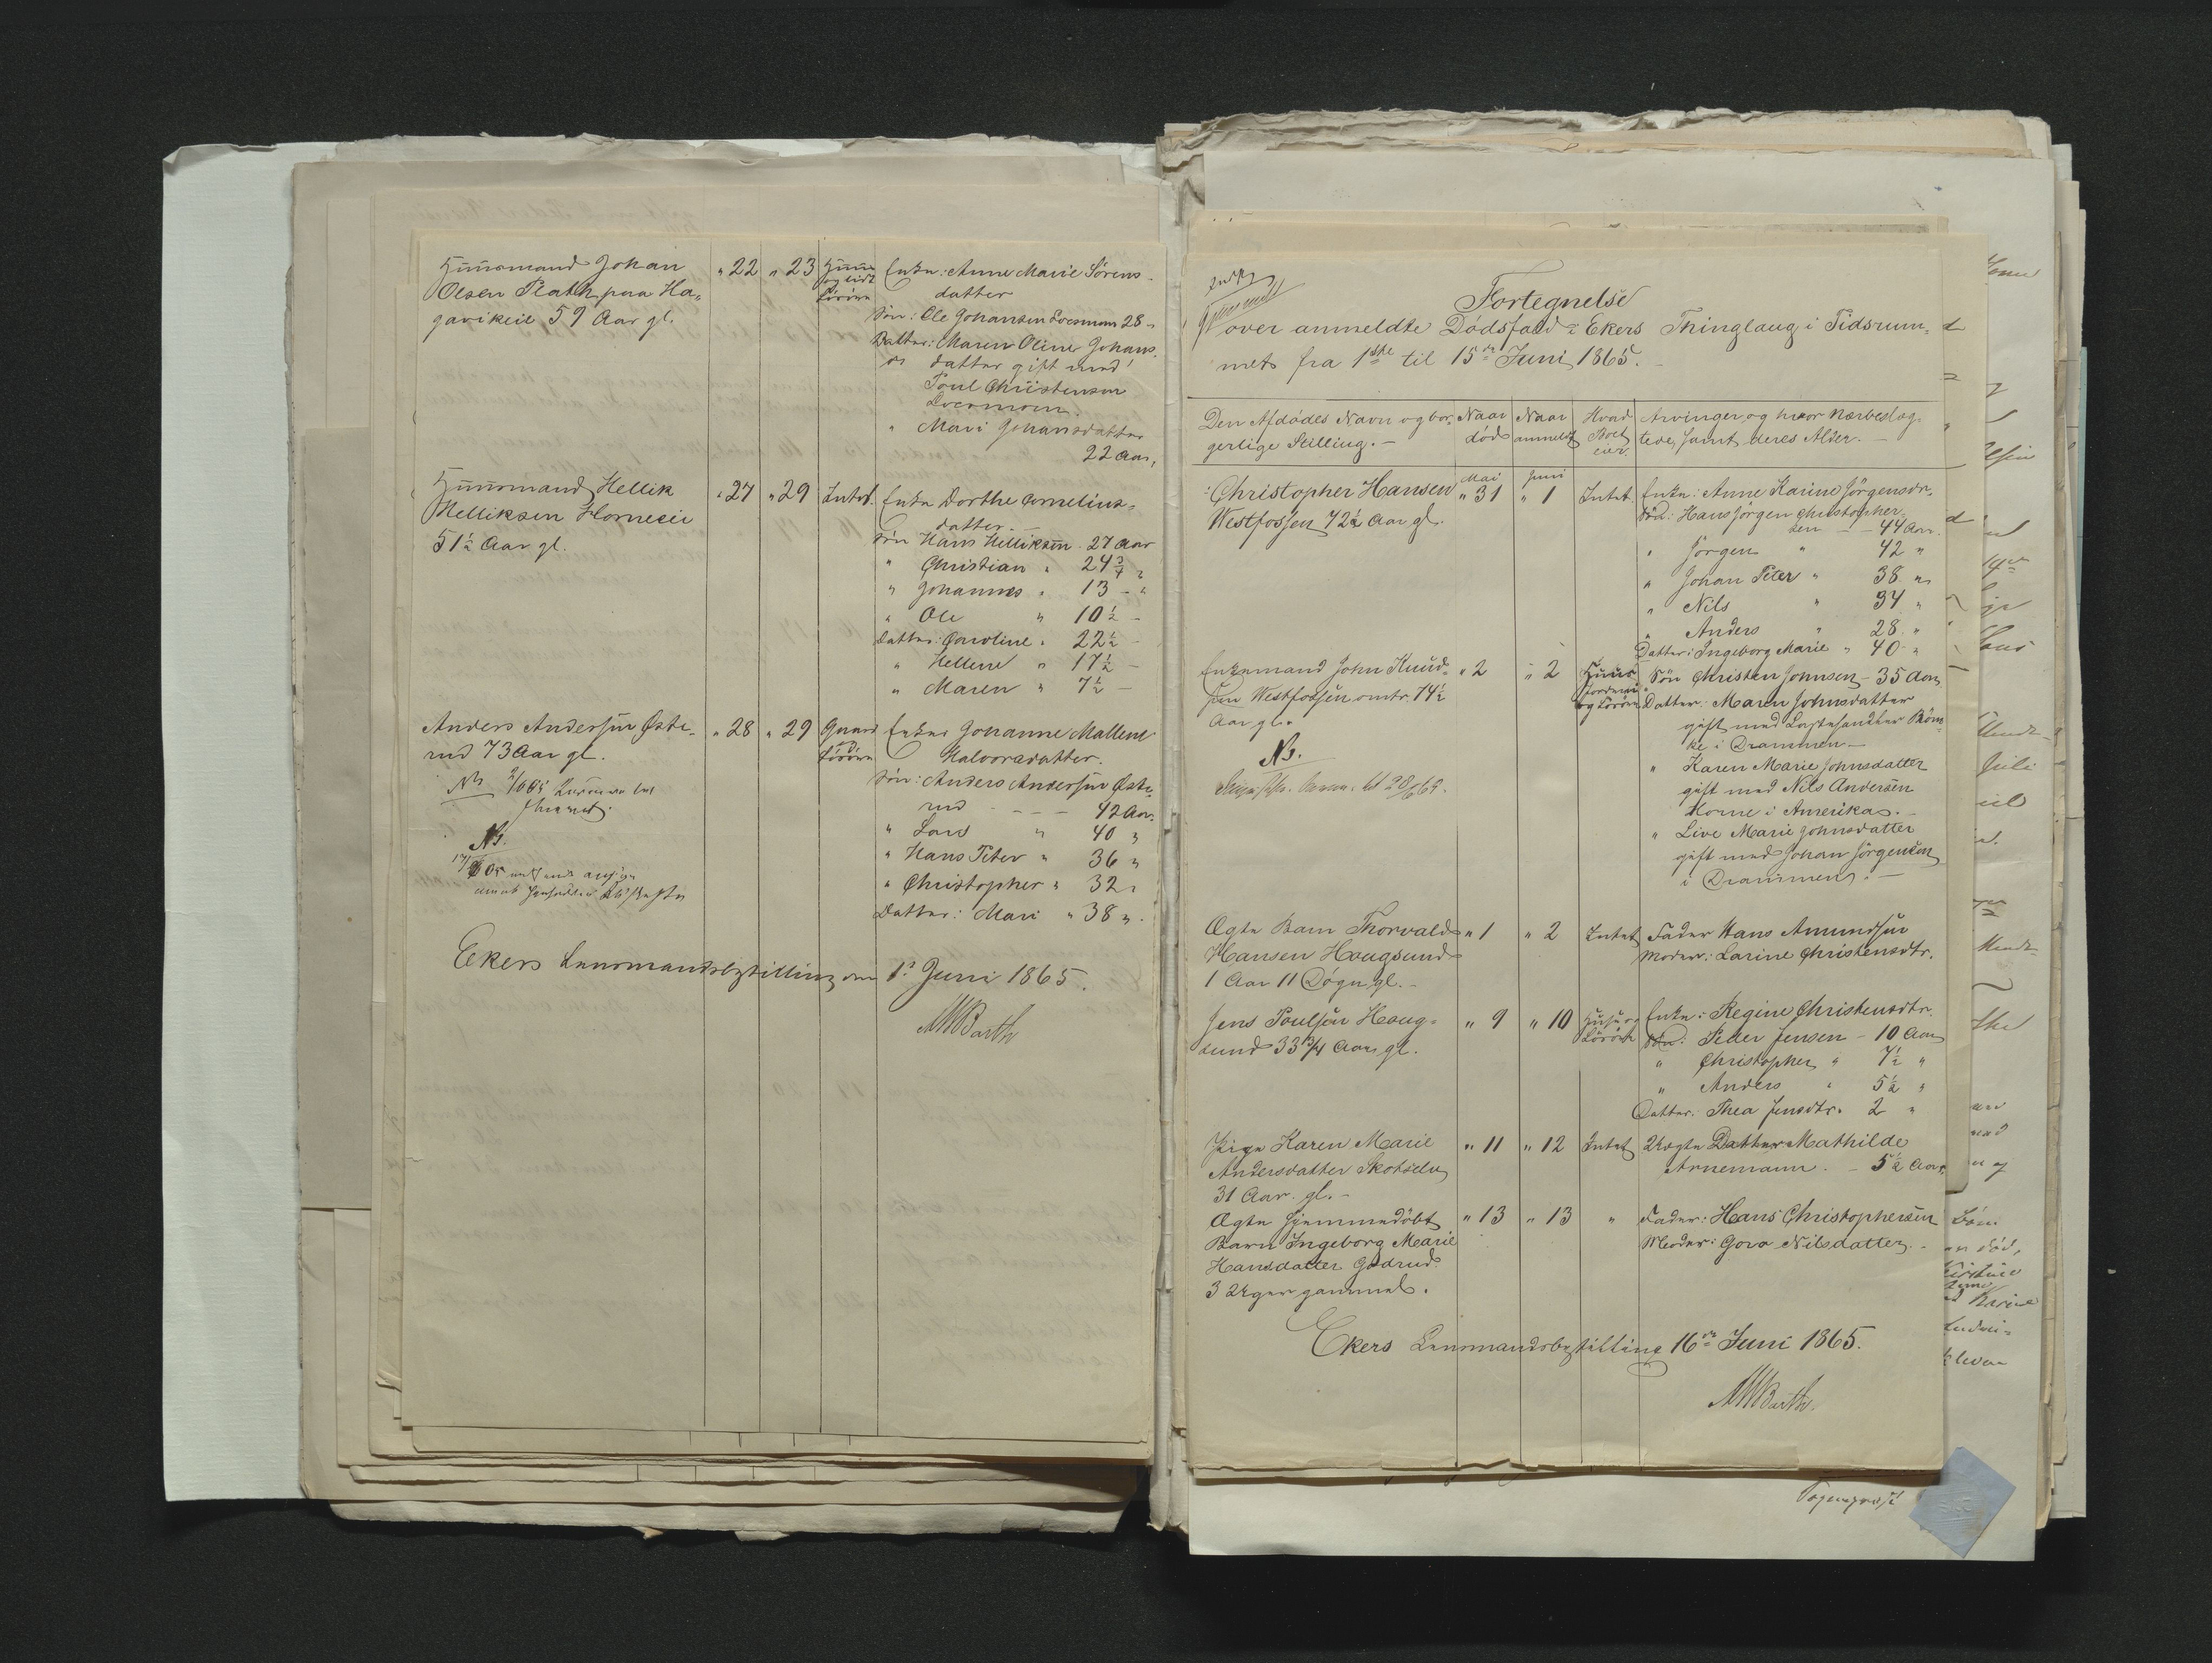 Huusmand Johan
Olsen Plath paa Ha-
gavikeie 59 Aar gl.
" 22 " 23 Huus og lidt Lösöre
Enke: Anne Marie Sörens-
datter
Sön: Ole Johansen Loesmoen 28 "
Datter: Maren Oline Johans-
datter gift med
Poul Christensen
Loesmoen.
" Mari Johansdatter
22 Aar,
Huusmand Hellik
Helliksen Horneeie
51½ Aar gl.
" 27 " 29 Intet.
Enke Dorthe Cornelius-
datter. -
Sön Hans Helliksen 27 Aar
" Christian " 24¾ "
" Johannes " 13 - "
" Ole " 10½ -
Datter: Caroline " 22½ -
" Hellene " 17½ -
" Maren " 7½ -
Anders Andersen Öste-
rud 73 Aar gl.
" 28 " 29 Gaard og Lösöre
Enke Johanne Mallene
Halvorsdatter.
Sön: Anders Andersen Öste-
rud - - - 42 Aar.
" Lars " 40 "
" Hans Peter " 36 "
" Christopher " 32 "
Datter: Mari " 38 ".
NB
NB.
Ekers Lensmandsbestilling den 1ste Juni 1865.
MWBarth
Fortegnelse
over anmeldte Dödsfald i Ekers Thinglaug i Tidsrum-
met fra 1ste til 15de Juni 1865.
Den Afdödes Navn og bor-
gerlige Stilling. -
Naar död
Naar anmeldt
Hvad Boet eier.
Arvinger og hvor nærbeslæg-
tede, samt deres Alder. -
Christopher Hansen
Westfossen 72½ Aar gl.
Mai " 31 Juni " 1 Intet.
Enke: Anne Karine Jörgensdr.
Sön: Hans Jörgen Christopher-
sen - - 44 Aar.
" Jörgen " 42 "
" Johan Peter " 38 "
" Nils " 34 "
" Anders " 28 "
Datter: Ingeborg Marie " 40 "
Enkemand John Knud-
sen Westfossen omtr. 74½
Aar gl.
NB.
" 2 " 2 Huus Fordring og Lösöre
Sön Christen Johnsen - 35 Aar
Datter: Maren Johnsdatter
gift med Lastehandler Böm-
ke i Drammen -
" Karen Marie Johnsdatter
gift med Nils Andersen
Horne i Amerika. -
" Live Marie Johnsdatter
gift med Johan Jörgensen
i Drammen. -
Ægte Barn Thorvald
Hansen Hougsund
1 Aar 11 Dögn gl. -
" 1 " 2 Intet
Fader Hans Amundsen
Moder: Larine Christensdtr.
Jens Poulsen Houg-
sund 33¾ Aar gl.
" 9 " 10 Huus og Lösöre
Enke: Regine Christensdtr.
Sön: Peder Jensen - 10 Aar
" Christopher " 7½ "
" Anders " 5½ "
Datter: Thea Jensdtr. 2 "
Pige Karen Marie
Andersdatter Skotselv
31 Aar gl. -
" 11 " 12 Intet
Uægte Datter Mathilde
Arnemann. - 5½ Aar.
Ægte hjemmedöbt
Barn Ingeborg Marie
Hansdatter Gosrud
3 Uger gammel.
" 13 " 13 "
Fader: Hans Christophersen
Moder: Goro Nilsdatter. -
Ekers Lensmandsbestilling 16de Juni 1865.
MWBarth.